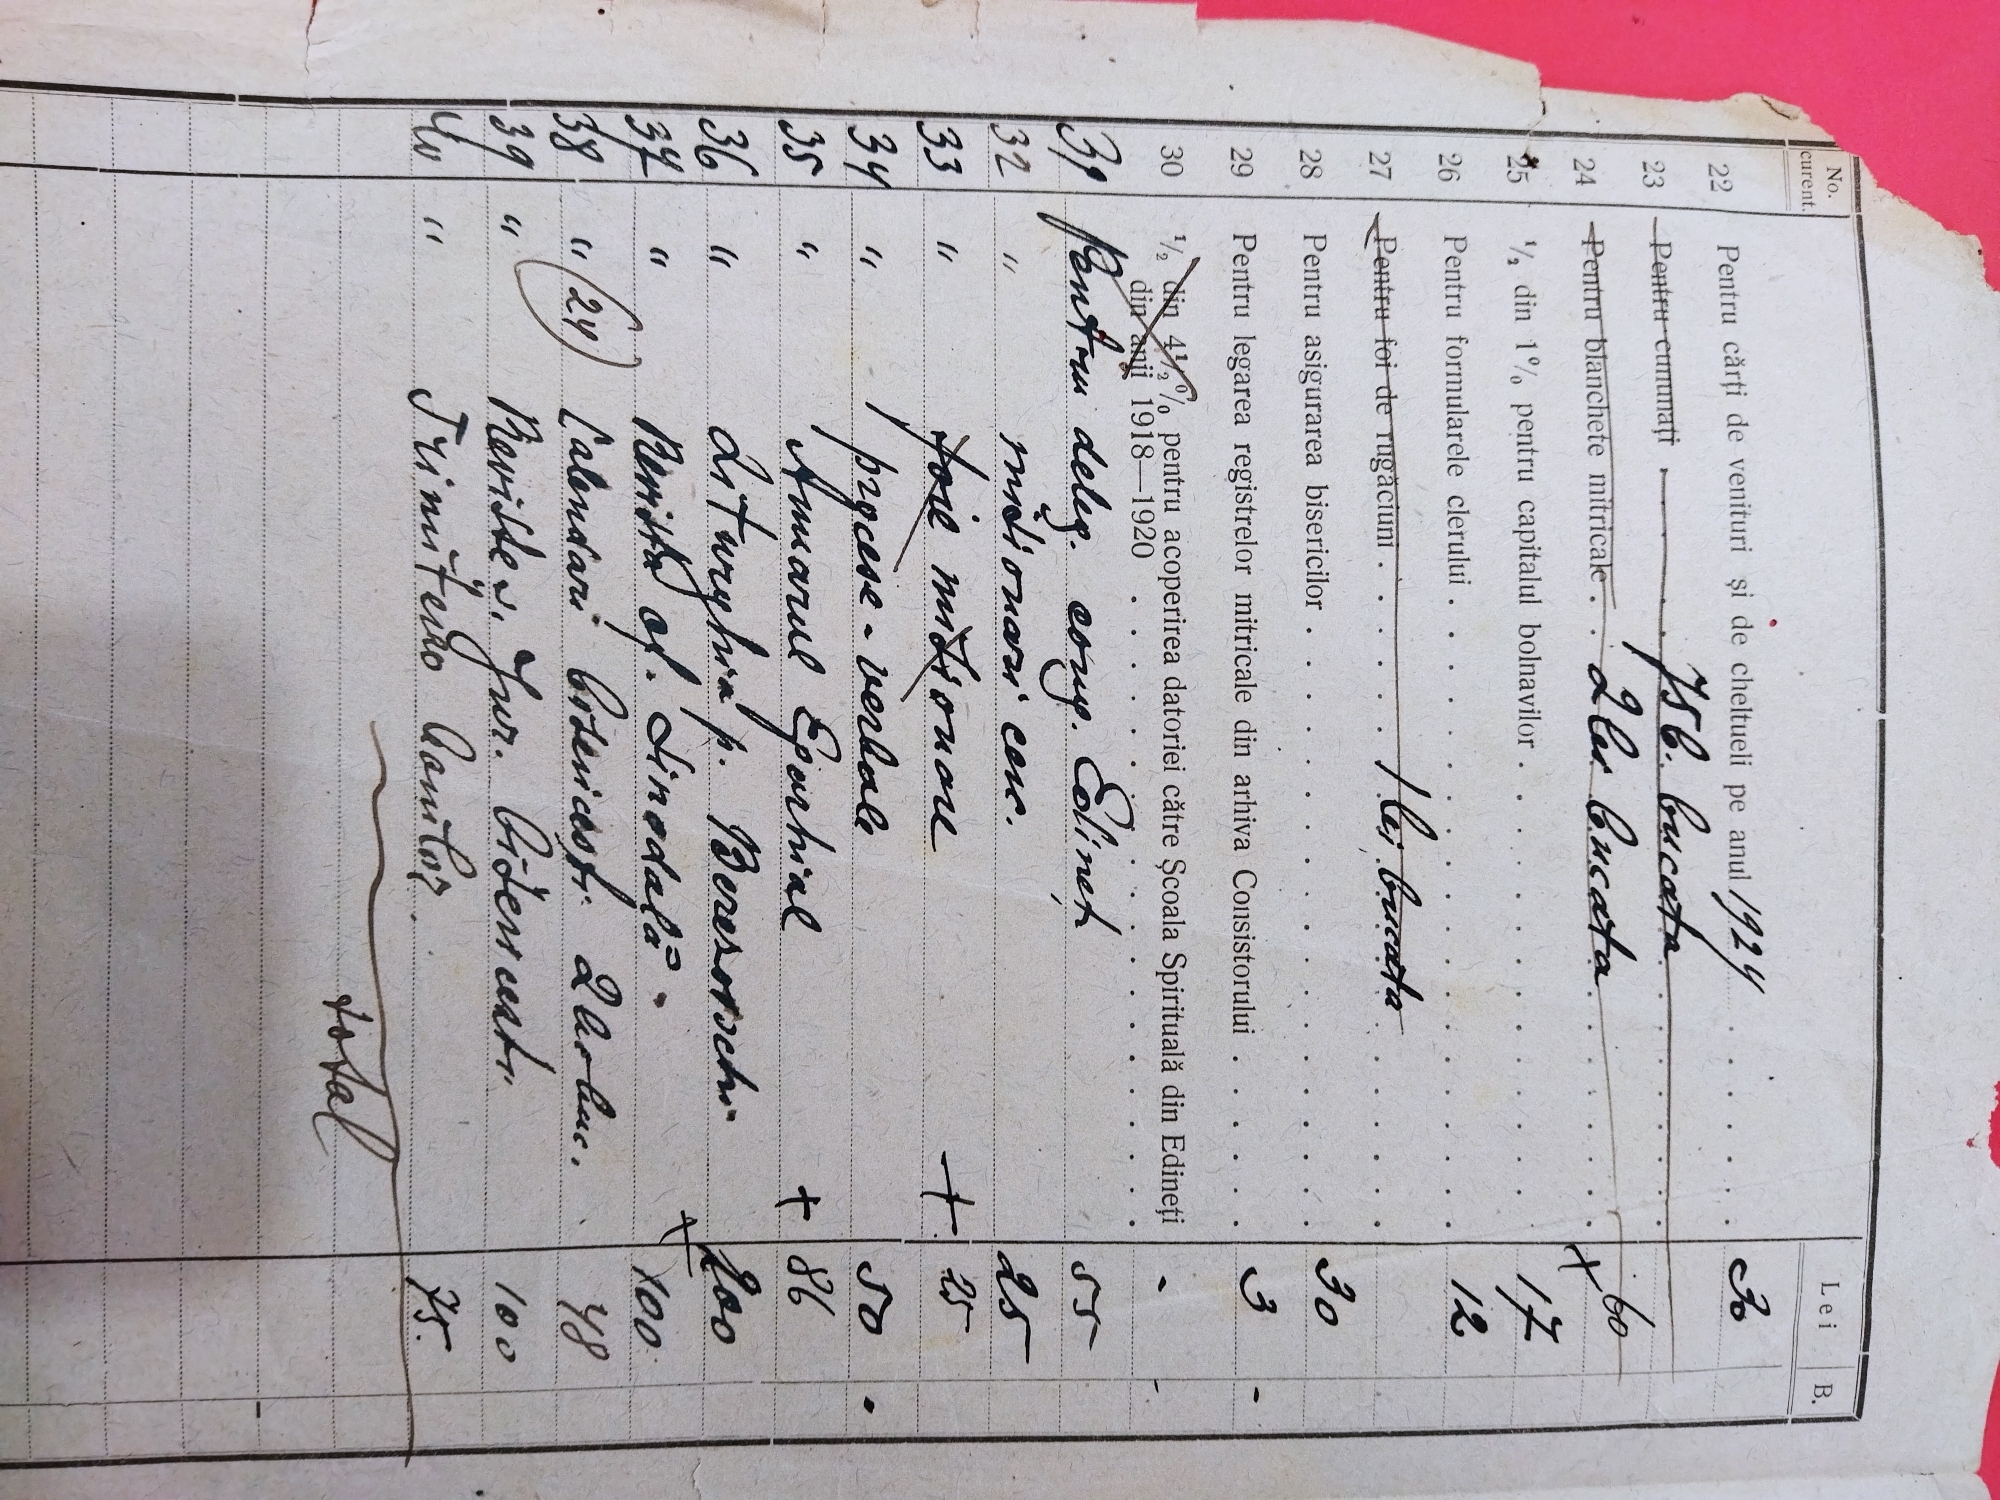 No. curent. Lei B.
22 Pentru cărți de venituri și de cheltueli pe anul 1924 . . . . 30
23 Pentru cununați 75 b. bucata
24 Pentru blanchete mitricale . . 2 lei bucata + 60
25 ½ din 1% pentru capitalul bolnavilor . . . . 17
26 Pentru formularele clerului . . . . 12
27 Pentru foi de rugăciuni . . . . 1 lei bucata
28 Pentru asigurarea bisericilor . . . . 30
29 Pentru legarea registrelor mitricale din arhiva Consistorului . . . . 3 -
30 ½ din 4½% pentru acoperirea datoriei către Școala Spirituală din Edineți
din anii 1918—1920 . . . . - -
31 Pentru deleg. congr. Edineț 55
32 " misionari cerc. 25
33 " foie misionare + 25
34 " procese-verbale 50
35 " Anuarul Eparhial + 86
36 " Liturghia p. + 200
37 " Revista of. Sinodală 100
38 " (24) Calendari bisericești. 2 lei buc. 48
39 " Reviste s. Jur. bisericești 100
40 " Trimiterea banilor 75.
total